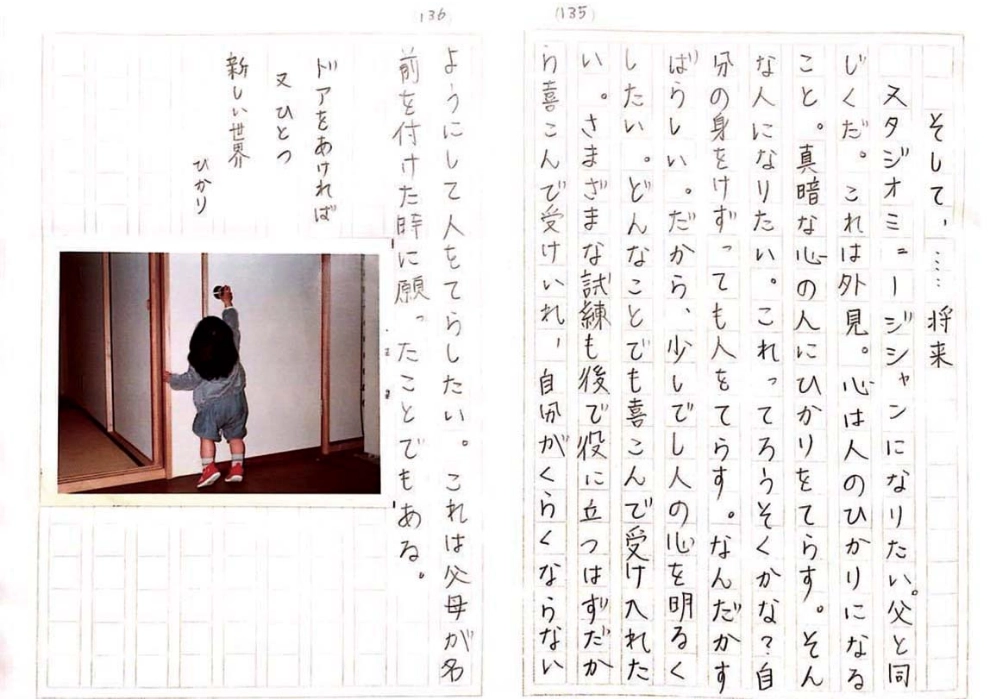 (135)
そして、……将来
スタジオミュージシャンになりたい。父と同
じくだ。これは外見。心は人のひかりになる
こと。真暗な心の人にひかりをてらす。そん
な人になりたい。これってろうそくかな?自
分の身をけずっても人をてらす。なんだかす
ばらしい。だから、少しでし人の心を明るく
したい。どんなことでも喜こんで受け入れた
い。さまざまな試練も後で役に立つはずだか
ら喜こんで受けいれ、自分がくらくならない
(136)
ようにして人をてらしたい。これは父母が名
前を付けた時に願ったことでもある。
ドアをあければ
又ひとつ
新しい世界
ひかり